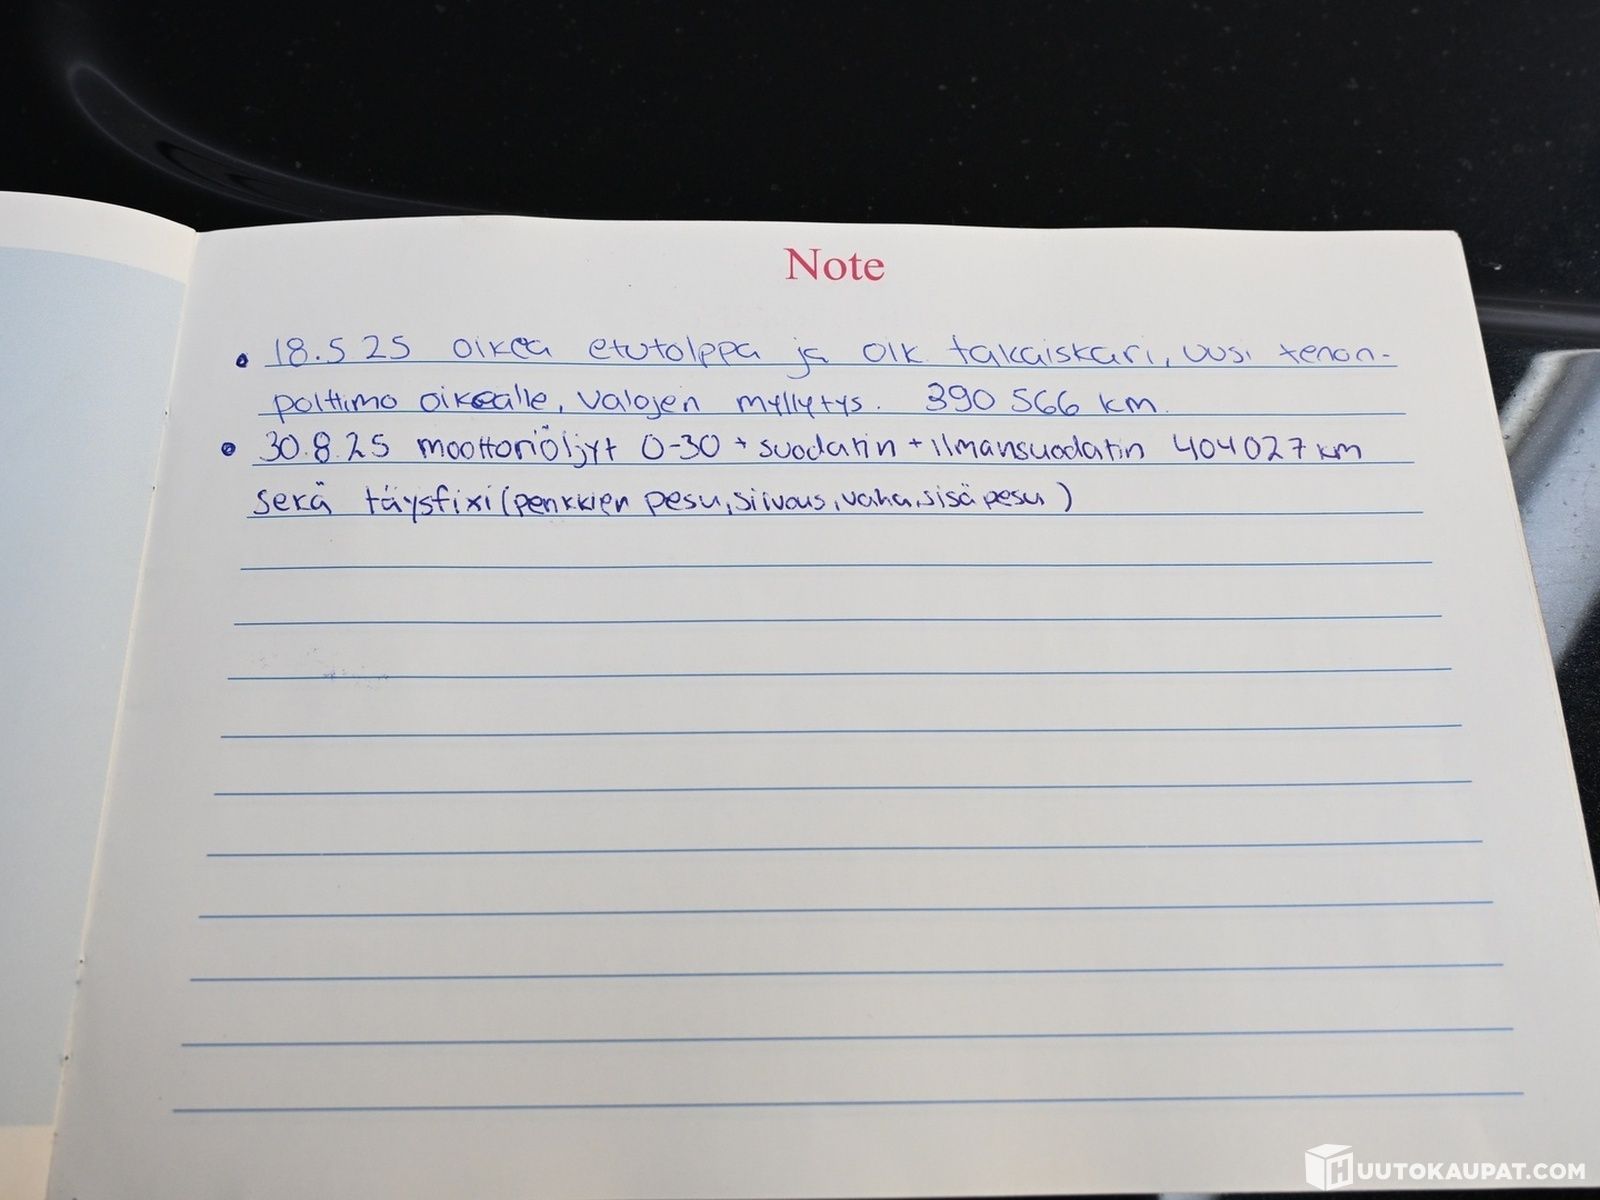 Note
• 18.5 25 oikea etutolppa ja oik. takaiskari, uusi xenon-
polttimo oikealle, valojen myllytys. 390 566 km.
• 30.8.25 moottoriöljyt 0-30 + suodatin + ilmansuodatin 404027 km
sekä täysfixi (penkkien pesu, siivous, vaha, sisäpesu)
HUUTOKAUPAT.COM